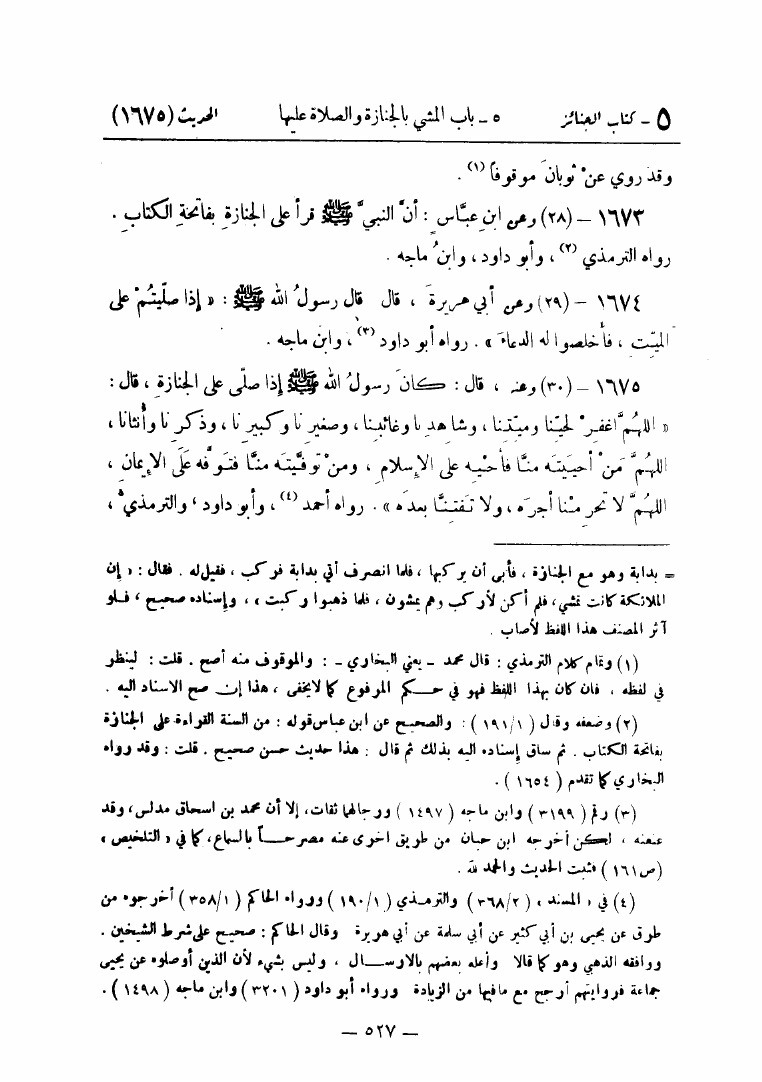 ٥ - كتاب الجنائز ٥ - باب المشي بالجنازة والصلاة عليها الحديث (١٦٧٥)
وقد رويَ عنْ ثوبانَ موقوفاً (١) .
١٦٧٣ - (٢٨) وعن ابنِ عبَّاسٍ : أنَّ النبيَّ ﷺ قرأ على الجنازةِ بفاتحةِ الكتابِ .
رواه الترمذي (٢) ، وأبو داود ، وابنُ ماجه .
١٦٧٤ - (٢٩) وعن أبي هريرةَ ، قال قال رسولُ الله ﷺ : « إذا صلّيتُمْ على
الميّتِ ، فأخلصوا له الدعاءَ » . رواه أبو داود (٣) ، وابن ماجه .
١٦٧٥ - (٣٠) وعنه ، قال : كانَ رسولُ الله ﷺ إذا صلّى على الجنازةِ ، قال :
« اللهُمَّ اغفِرْ لحيّنا وميّتِنا ، وشاهدِنا وغائبِنا ، وصغيرِنا وكبيرِنا ، وذكرِنا وأُنثانا ،
اللهُمَّ مَنْ أحييتَه منَّا فأحْيِه على الإسلامِ ، ومنْ توفَّيتَه منَّا فتوفَّه علَى الإيمانِ ،
اللهُمَّ لا تحرِمْنا أجرَه ، ولا تَفتِنَّا بعدَه » . رواه أحمد (٤) ، وأبو داود ، والترمذيُّ ،
= بدابة وهو مع الجنازة ، فأبى أن يركبها ، فلما انصرف أتي بدابة فركب ، فقيل له . فقال : « إن
الملائكة كانت تمشي، فلم أكن لأركب وهم يمشون ، فلما ذهبوا ركبت » ، وإسناده صحيح ، فلو
آثر المصنف هذا اللفظ لأصاب .
(١) وتمام كلام الترمذي : قال محمد - يعني البخاري - : والموقوف منه أصح . قلت : لينظر
في لفظه ، فان كان بهذا اللفظ فهو في حكم المرفوع كما لا يخفى ، هذا إن صح الاسناد اليه .
(٢) وضعفه وقال ( ١/١٩١ ) : والصحيح عن ابن عباس قوله : من السنة القراءة على الجنازة
بفاتحة الكتاب . ثم ساق إسناده اليه بذلك ثم قال : هذا حديث حسن صحيح . قلت : وقد رواه
البخاري كما تقدم ( ١٦٥٤ ) .
(٣) رقم ( ٣١٩٩ ) وابن ماجه ( ١٤٩٧ ) ورجالهما ثقات، إلا أن محمد بن اسحاق مدلس، وقد
عنعنه ، لكن أخرجه ابن حبان من طريق اخرى عنه مصرحاً بالسماع، كما في « التلخيص »
(ص ١٦١) فثبت الحديث والحمد لله .
(٤) في « المسند » ( ٢/٣٦٨ ) والترمذي ( ١/١٩٠ ) ورواه الحاكم ( ١/٣٥٨ ) أخرجوه من
طرق عن يحيى بن أبي كثير عن أبي سلمة عن أبي هريرة وقال الحاكم : صحيح على شرط الشيخين .
ووافقه الذهبي وهو كما قالا وأعله بعضهم بالارسال ، وليس بشيء لأن الذين أوصلوه عن يحيى
جماعة فروايتهم أرجح مع ما فيها من الزيادة ورواه أبو داود ( ٣٢٠١ ) وابن ماجه ( ١٤٩٨ ) .
- ٥٢٧ -